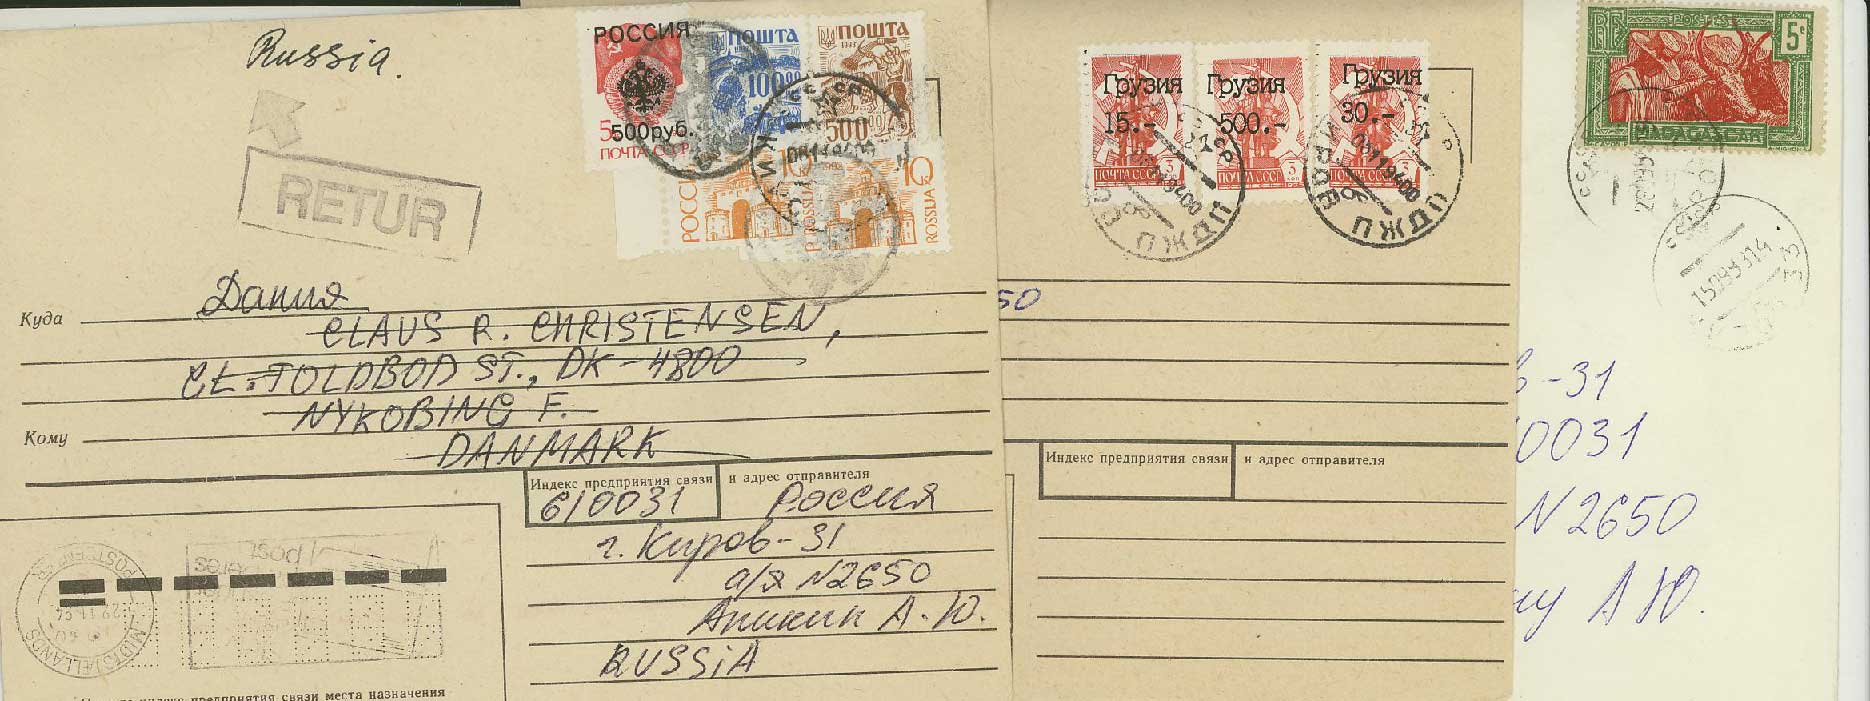 Russia.
RETUR
РОССИЯ
500руб.
ПОЧТА СССР
ПОШТА
100.00
ПОШТА
500
РОССИЯ
10
ROSSIJA
Куда
Дания
CLAUS R. CHRISTENSEN,
GL. TOLDBOD ST., DK-4800
NYKOBING F.
Кому
DANMARK
Индекс предприятия связи и адрес отправителя
610031 Россия
г. Киров-31
а/я N2650
Аникин А.Ю.
RUSSiA
post
MIDTSJÆLLANDS
POSTCENTER
предприятия связи места назначения
Грузия
15.-
3
ПОЧТА СССР
Грузия
500.-
3
ПОЧТА СССР
Грузия
30.-
3
ПОЧТА СССР
50
Индекс предприятия связи и адрес отправителя
RF
POSTES
5c
MADAGASCAR
-31
0031
N2650
ну А Ю.